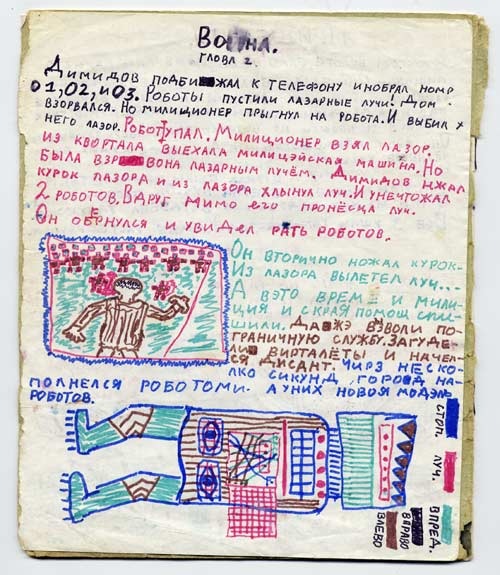 Война.
глова 2.
Димидов подбижал к телефону инобрал номр
01,02, и 03. Роботы пустили лазарные лучи! Дом
взорвался. Но милиционер прыгнул на робота. И выбил у
него лазор. Робот упал. Милиционер взял лазор.
из квортала выехала милицэйская машина. Но
была взрвона лазарным лучём. Димидов нжал
курок лазора и из лазора хлынул луч. И унечтожал
2 роботов. Вдруг мимо его пронёсца луч.
Он обернулся и увидел рать роботов.
Он вторично ножал курок-
Из лазора вылетел луч...
А вэто време и мили-
ция и скрая помощ спи-
шили. Давжэ взволи по-
граничную службу. Загуде-
ли вирталёты и начел-
ся дисант. чирз неско-
лко сикунд, город на-
полнелся роботоми. А у них новоя модэль
роботов.
стоп.
луч.
впред.
вправо
влево